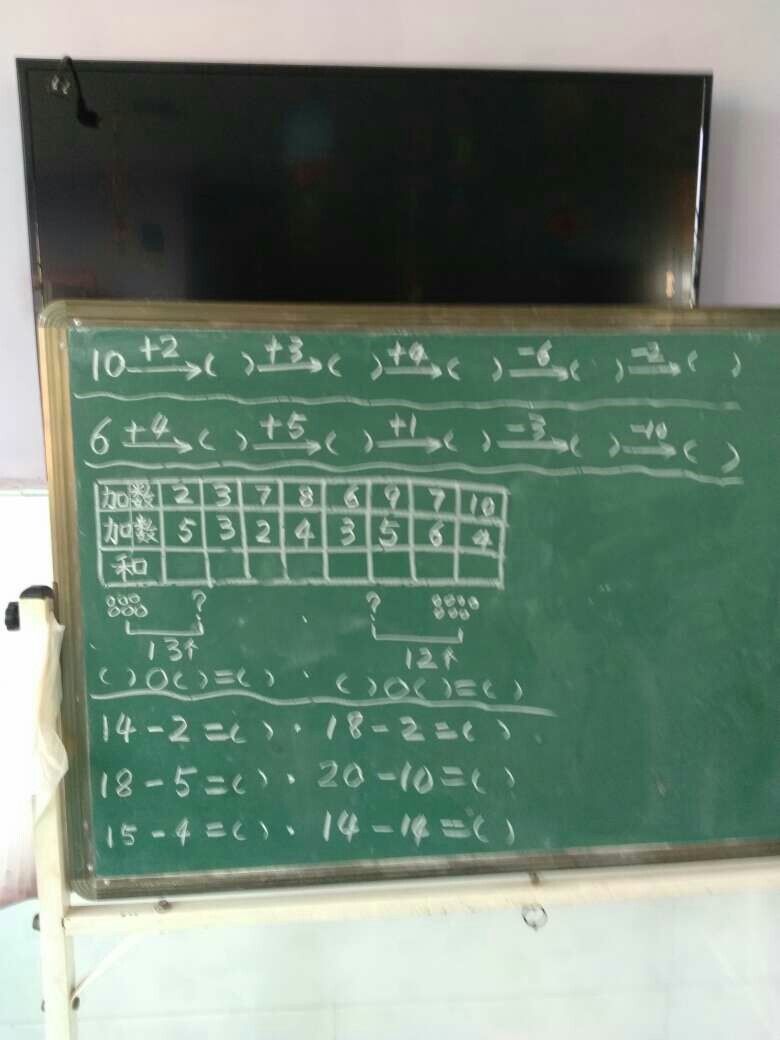 10 +2→( ) +3→( ) +4→( ) -6→( ) -2→( )
6 +4→( ) +5→( ) +1→( ) -3→( ) -10→( )
加数 2 3 7 8 6 9 7 10
加数 5 3 2 4 3 5 6 4
和
? ?
13个 12个
( )○( )=( ) · ( )○( )=( )
14-2=( ) · 18-2=( )
18-5=( ) · 20-10=( )
15-4=( ) · 14-14=( )